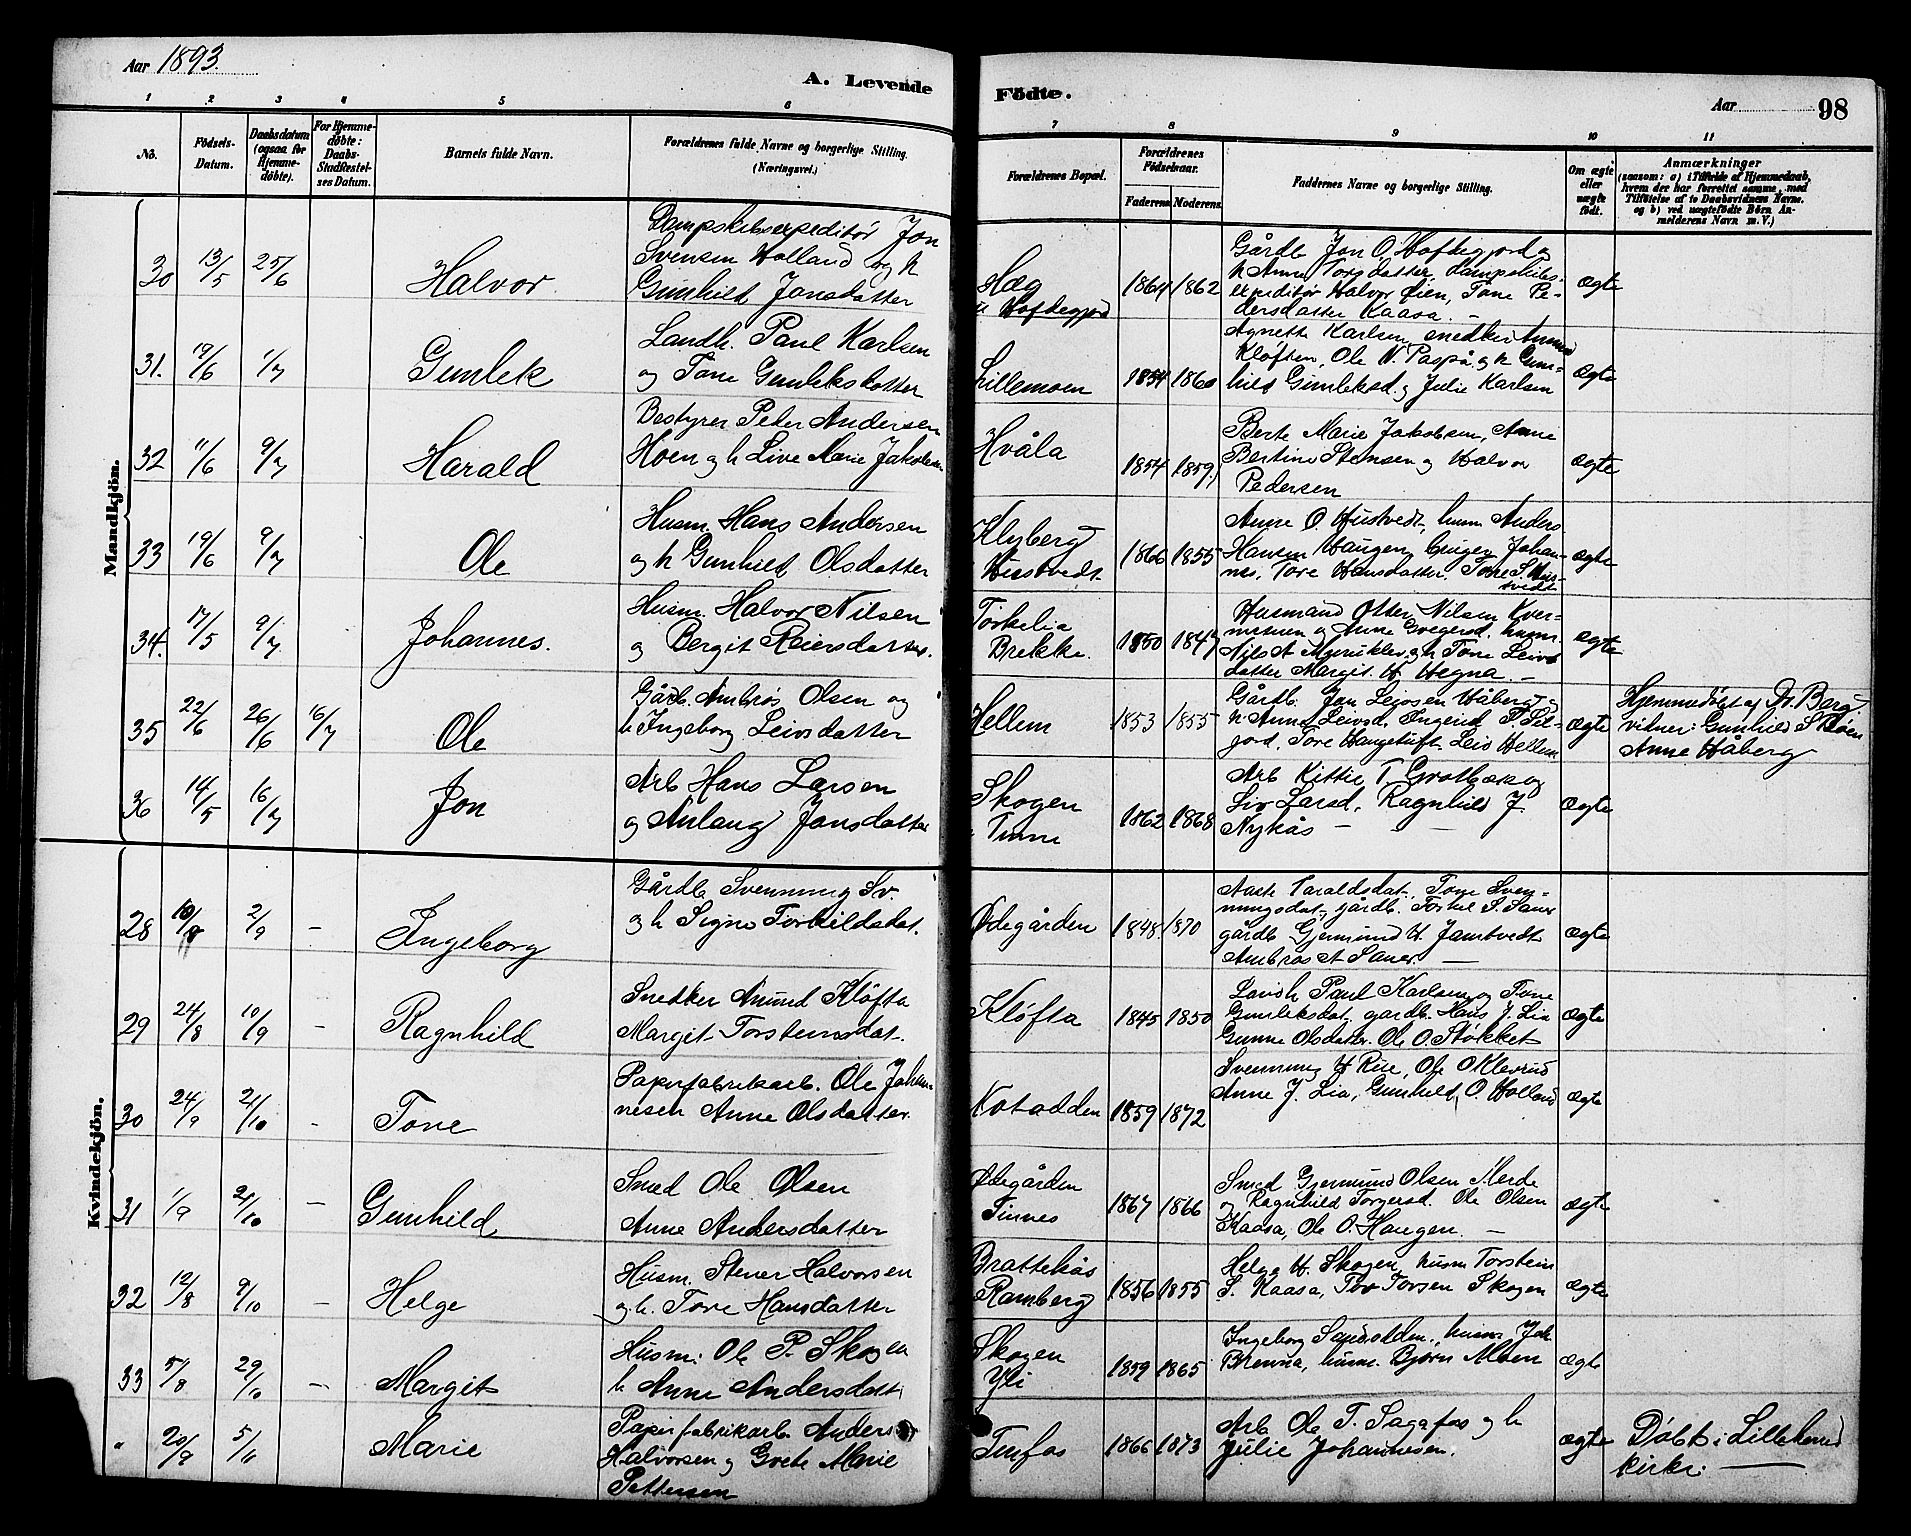 Aar 1893.
A. Levende
Födte.
Aar 98
1 2 3 4 5 6
7 8 9 10 11
No.
Födsels-
Datum.
Daabsdatum
(ogsaa for
Hjemme-
döbte).
For Hjemme-
döbte:
Daabs-
Stadfæstel-
ses Datum.
Barnets fulde Navn.
Forældrenes fulde Navne og borgerlige Stilling.
(Næringsvei.)
Forældrenes Bopæl.
Forældrenes
Födselsaar.
Faderens Moderens
Faddernes Navne og borgerlige Stilling.
Om ægte
eller
uægte
födt.
Anmærkninger
(saasom: a) i Tilfælde af Hjemmedaab,
hvem der har forrettet samme, med
Tilföielse af to Daabsvidners Navne.
og b) ved uægtefödte Börn An-
melderens Navn m. V.)
Mandkjön.
30 13/5 25/6 Halvor.
Dampskibsexpeditör Jon
Svensen Holland og h
Gunhild Jonsdatter
Hæg
Hoftegjord
1864 1862
Gårdb. Jon O. Hoftegjord og
h Anne Torgdatter, Dampskibs-
expeditör Halvor Öien, Tone Pe-
dersdatter Kaasa. –
ægte
31. 19/6 1/7 Gunlek
Landh. Paul Karlsen
og Tone Gunleksdatter
Lillemoen
1854 1860
Agnethe Karlsen, snedker Anund
Kløften, Ole N. Paspå og h Gun-
hild Gunleksd. og Julie Karlsen
ægte
32 11/6 9/7 Harald
Bestyrer Peder Andersen
Hoen og h Live Marie Jakobsen
Hvåla
1854 1859
Berte Marie Jakobsen, Anne
Bertine Stensen og Halvor
Pedersen
ægte
33 19/6 9/7 Ole
Husm. Hans Andersen
og h Gunhild Olsdatter
Klyberg
Hustvedt
1866 1855
Anne O. Hustvedt, husm. Anders
Hansen Haugen, Johan-
nes, Tore Hansdatter. Tone S. Hus-
tvedt
ægte
34. 17/5 9/7 Johannes.
Husm. Halvor Nilsen
og Bergit Reiersdatter.
Torkelia
Brekke.
1850 1847
Husmand Otter Nilsen Kver-
nmoen og Anne Gregersd. husm.
Nils A og h Tone Leivs
datter Margit H Hegna. –
ægte
35 22/6 26/6 16/7 Ole
Gårdb. Ambros Olsen og
h Ingeborg Leivsdatter
Hellem
1853 1855
Gårdb. Jon Leivsen Håberg og
h Anne Leivsd, Ingerid P. Sil-
jord, Tore Leiv Hellem
ægte
Hjemmedöbt af Dr. Berg.
vidner: Gunhild S Böen
Anne Håberg
36 14/5 16/7 Jon
Arb Hans Larsen
og Aslaug Jonsdatter
Skogen
Tinne
1862 1868
Arb Kittil T. Grotbæk og
Liv Larsd, Ragnhild J.
Nykås – –
ægte
Kvindekjön.
28 10/8 2/9 – Ingeborg
Gårdb Svennung Sv.
og h Signe Torkildsdat.
Ødegården
1848 1870
Aaste Taraldsdat, Tone Sven-
nungsdat., gårdb. Torkel S. Sauer
gårdb Gjermund H. Jamtvedt
Ambros A Sauer. –
ægte
29 24/8 10/9 – Ragnhild
Snedker Anund Kløfta
Margit Torsteinsdat.
Kløfta
1845 1850
Landh Paul Karlsen og Tone
Gunleksdat. gardb. Hans J. Lia
Gunne Olsdatter. Ole O Støkket
ægte
30 24/9 2/10 – Tone
Papirfabrikarb. Ole Johan-
nesen Anne Olsdatter.
Kotodden
1859 1872
Svennung H Rue, Ole O Klevrud
Anne J. Lia, Gunhild, O. Holland
ægte
31 1/9 2/10 – Gunhild
Smed Ole Olsen
Anne Andersdatter
Ødegården
Tinnes
1867 1866
Smed Gjermund Olsen Merde
og Ragnhild Torgersd. Ole Olsen
Kaasa, Ole O. Haugen. –
ægte
32 12/8 9/10 – Helge
Husm. Stener Halvorsen
og h. Tore Hansdatter
Brattekås
Ramberg
1856 1855
Helge H. Skogen, husm Torstein
S. Kaasa, Tov Torsen Skogen
ægte
33 5/8 29/10 – Margit
Husm: Ole P. Skogen
h Anne Andersdatt
Skogen
Yli
1859 1865
Ingeborg Sandodden., husm Joh
Brenna, husm. Bjørn Moen
ægte
" 20/9 5/11 Marie
Papirfabrikarb Anders
Halvorsen og Grete Marie
Pettersen
Tinfos
1866 1873
Arb Ole T. Sagafos og h
Julie Johannesen.
ægte
Döbt i Lilleherred
kirke. –